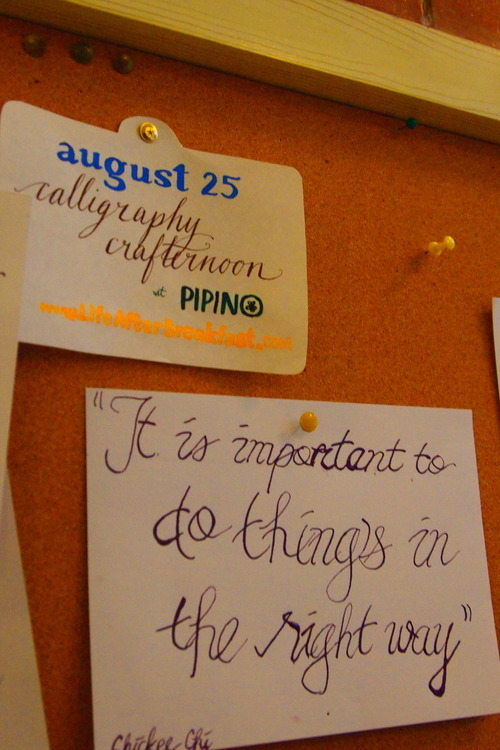 august 25
calligraphy
crafternoon
at PIPINO
www.LifeAfterBreakfast.com
"It is important to
do things in
the right way"
Chickee Chi